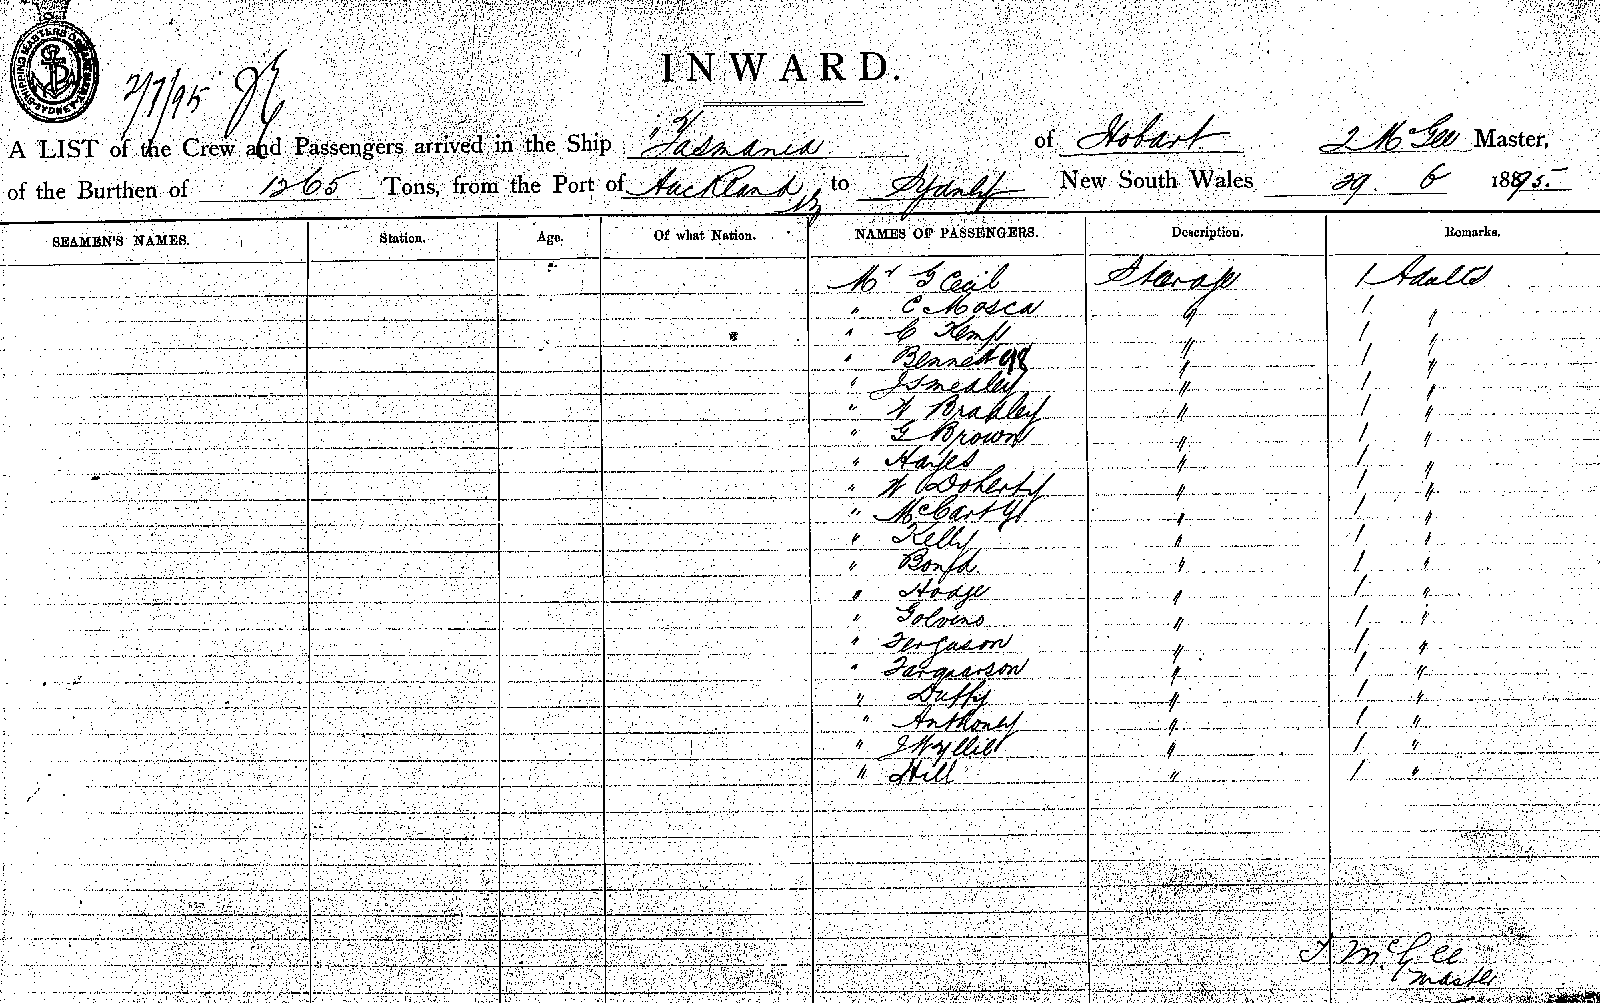 INWARD.
2/7/95
A LIST of the Crew and Passengers arrived in the Ship "Tasmania of Hobart McGee Master,
of the Burthen of 1265 Tons, from the Port of Auckland to Sydney New South Wales 29. 6 1895.
SEAMEN'S NAMES. Station. Age. Of what Nation. NAMES OF PASSENGERS. Description. Remarks.
Mr G Cecil Steerage 1 Adults
" C Mosca " 1 "
" C Kemp " 1 "
" Bennett " 1 "
" J Smedley " 1 "
" W Bradley " 1 "
" G Brown " 1 "
" Hayes " 1 "
" W Doherty " 1 "
" McCarty " 1 "
" Kelly " 1 "
" " 1 "
" Hodge " 1 "
" Golvins " 1 "
" Ferguson " 1 "
" Farquarson " 1 "
" Duffy " 1 "
" Anthoney " 1 "
" J Wyllie " 1 "
" Hill " 1 "
T McGee
Master